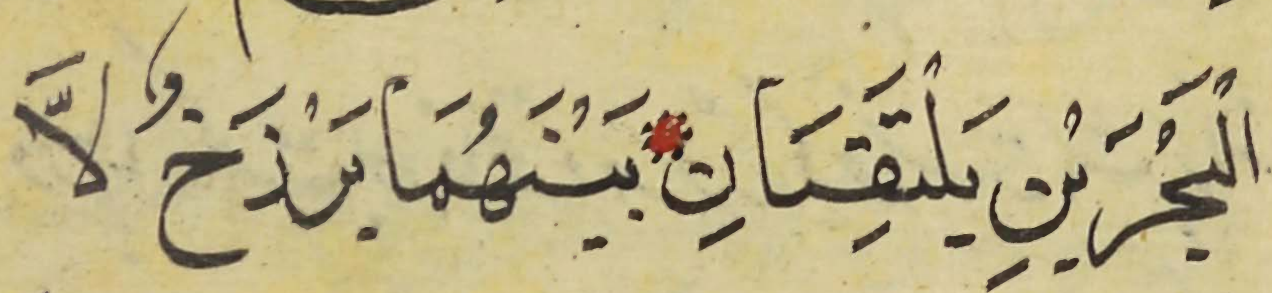 الْبَحْرَيْنِ يَلْتَقِيَانِ بَيْنَهُمَا بَرْزَخٌ لَّا